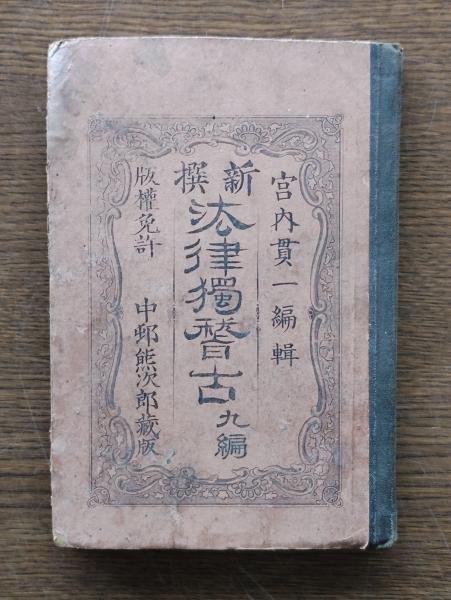 宮内貫一編輯
新撰
法律獨稽古
九編
版權免許
中邨熊次郎藏版